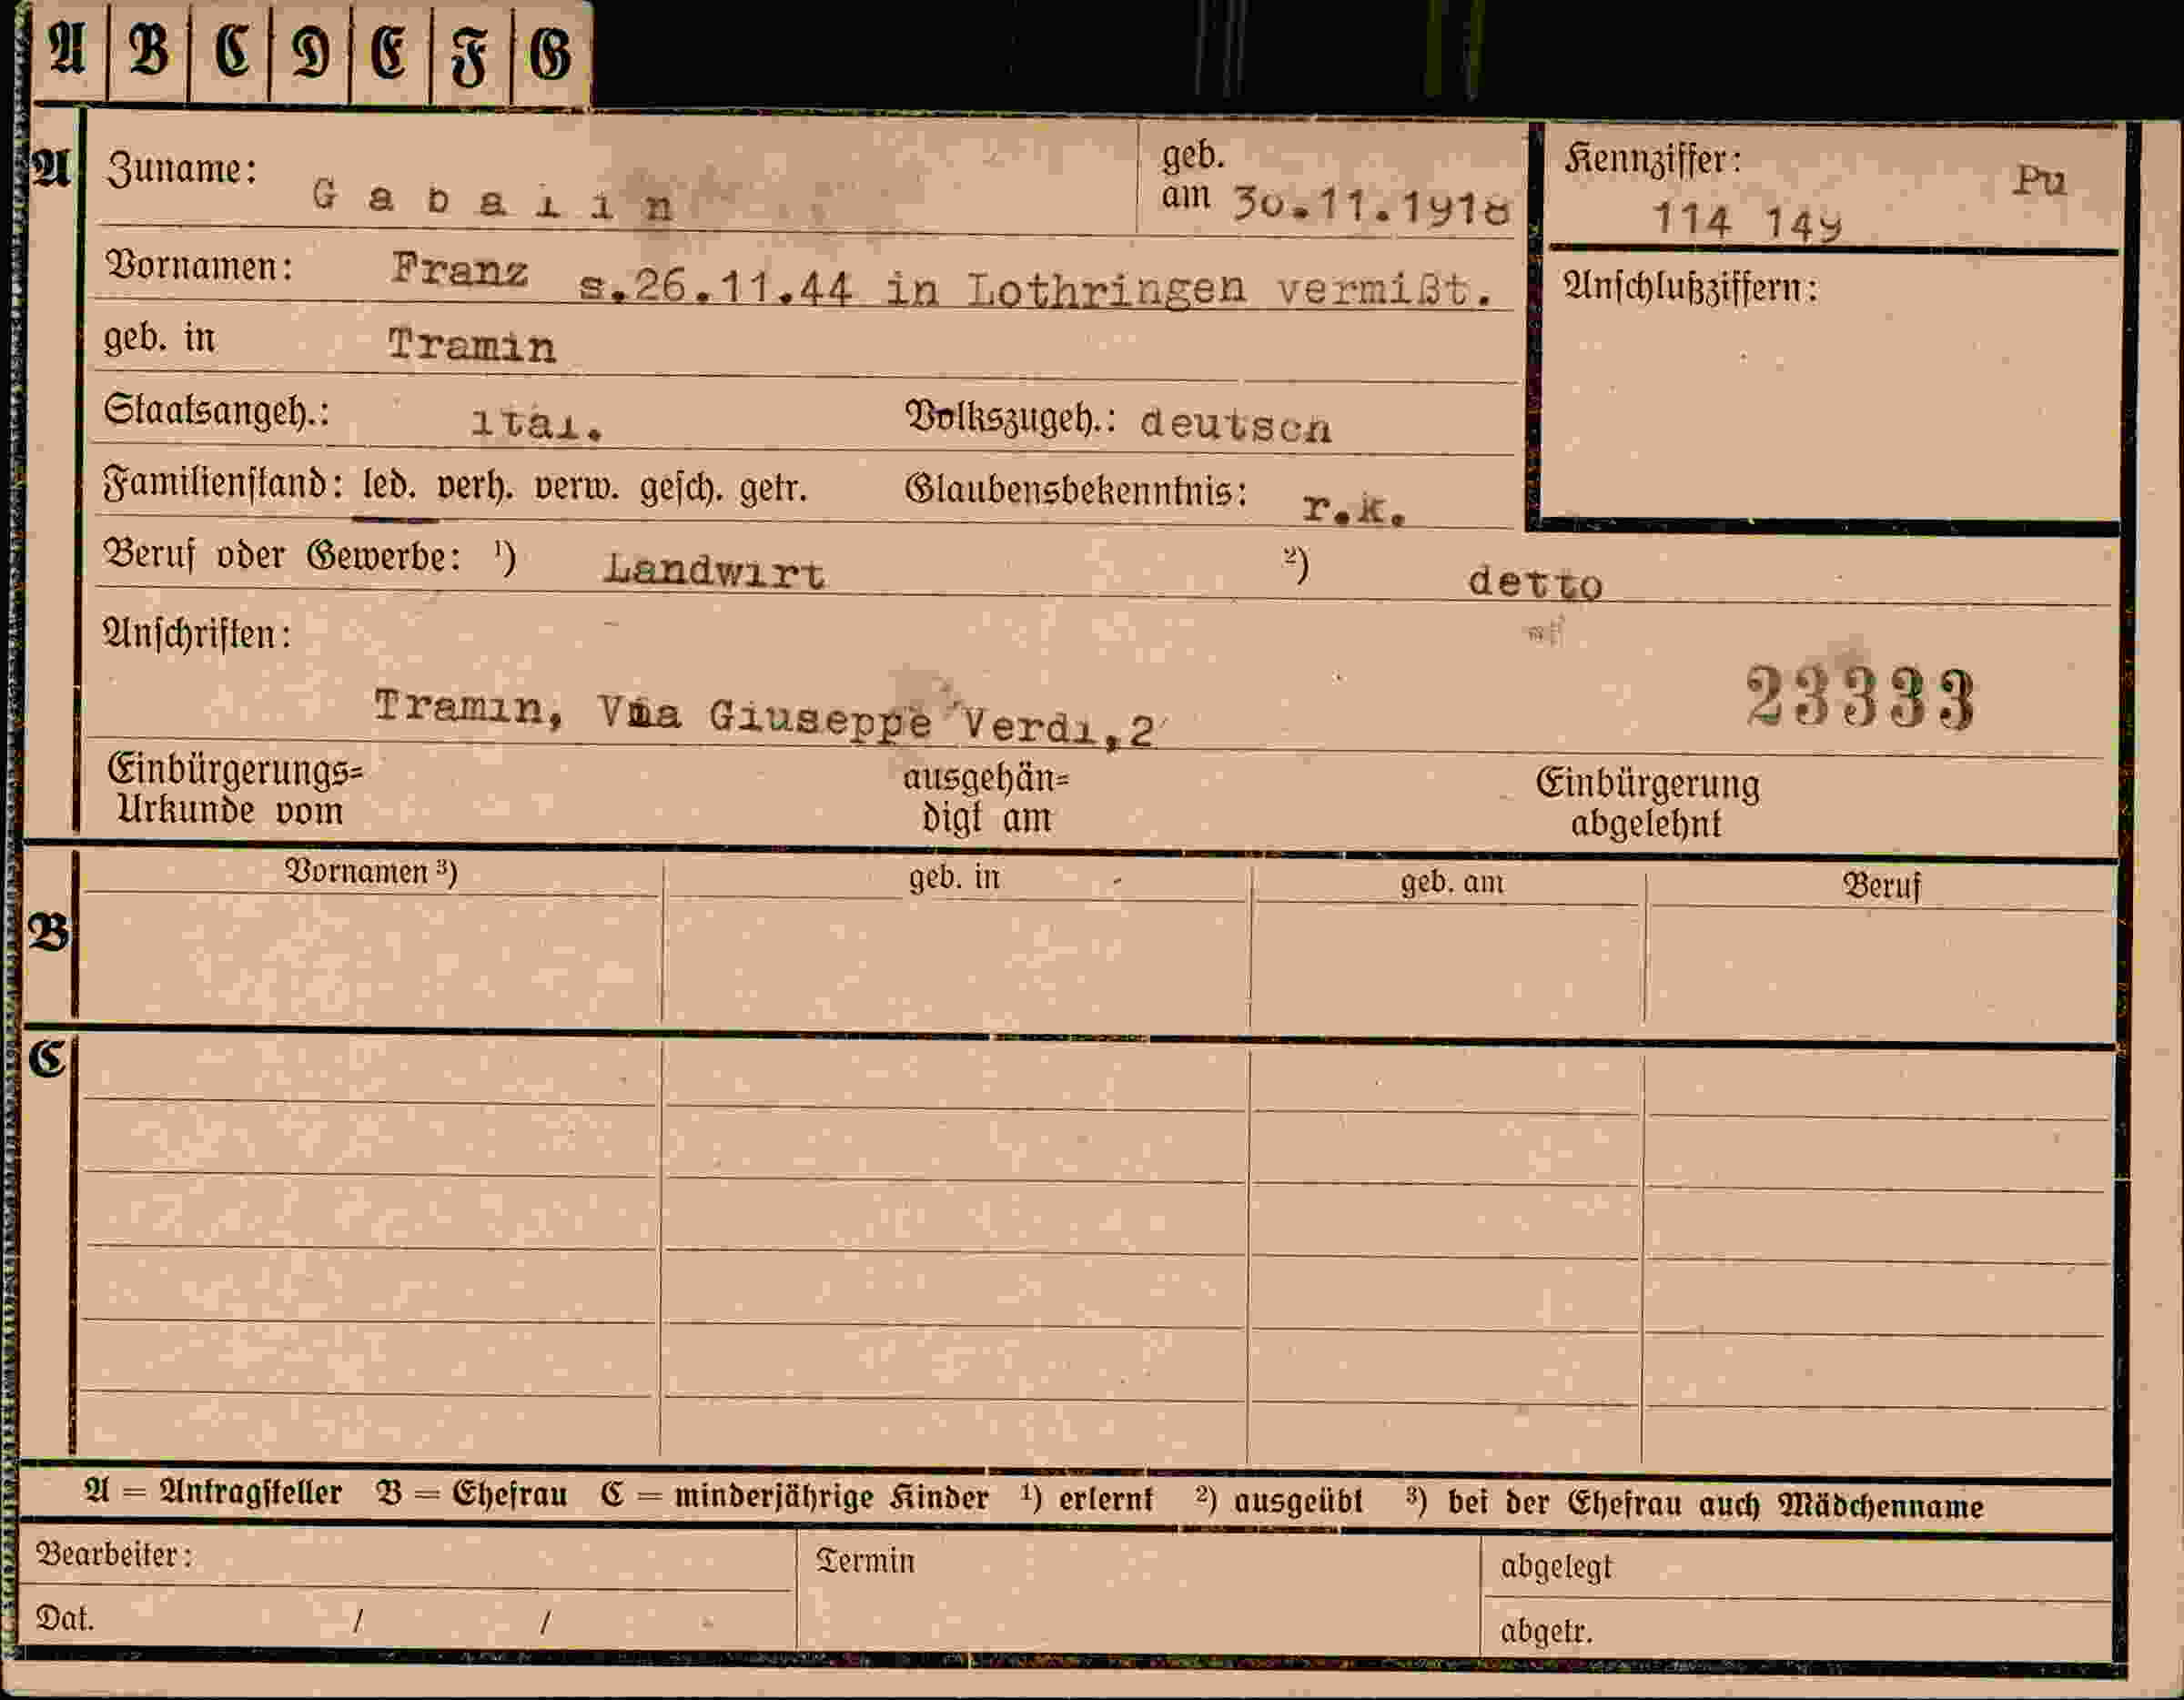 A B C D E F G
A Zuname: Gabalin geb. am 30.11.1918 Kennziffer: 114 149 Pu
Vornamen: Franz s.26.11.44 in Lothringen vermißt. Anschlußziffern:
geb. in Tramin
Staatsangeh.: ital. Volkszugeh.: deutsch
Familienstand: led. verh. verw. gesch. getr. Glaubensbekenntnis: r.k.
Beruf oder Gewerbe: ¹) Landwirt ²) detto
Anschriften:
23333
Tramin, Via Giuseppe Verdi,2
Einbürgerungs= ausgehän= Einbürgerung
Urkunde vom digt am abgelehnt
Vornamen ³) geb. in geb. am Beruf
B
C
A = Antragsteller B = Ehefrau C = minderjährige Kinder ¹) erlernt ²) ausgeübt ³) bei der Ehefrau auch Mädchenname
Bearbeiter: Termin abgelegt
Dat. / / abgetr.